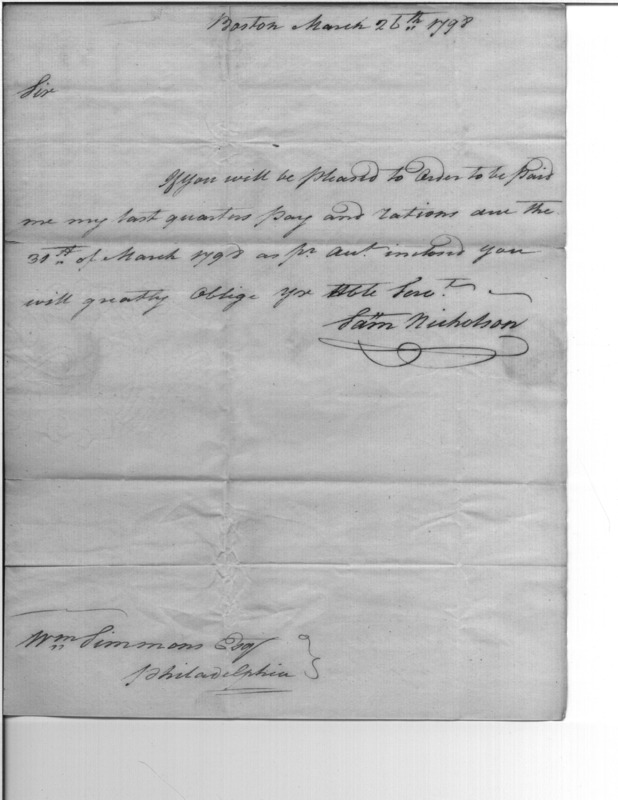 Boston March 26th 1798
Sir
If you will be pleased to Order to be paid
me my last quarters pay and rations due the
31st of March 1798 as pr. Aut. inclosd you
will greatly Oblige Yr Hble Servt.
Sam Nicholson
Wm Simmons Esq
Philadelphia